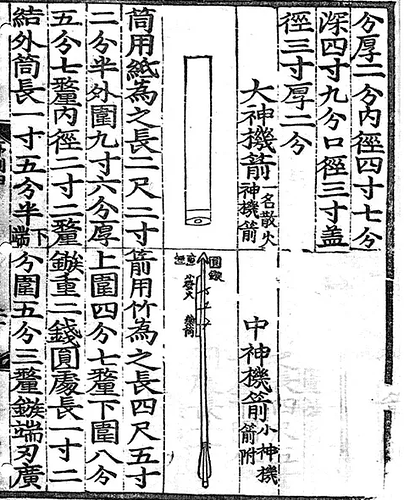 分厚二分內徑四寸七分
深四寸九分口徑三寸盖
徑三寸厚二分
大神機箭一名散火神機箭
筒用紙為之長二尺二寸
二分半外圍九寸六分厚
五分七釐內徑二寸二釐
結外筒長一寸五分半下端
中神機箭小神機箭附
小發火
箭用竹為之長四尺五寸
上圍四分七釐下圍八分
鏃重二錢圓處長一寸二
分圍五分三釐鏃端刃廣